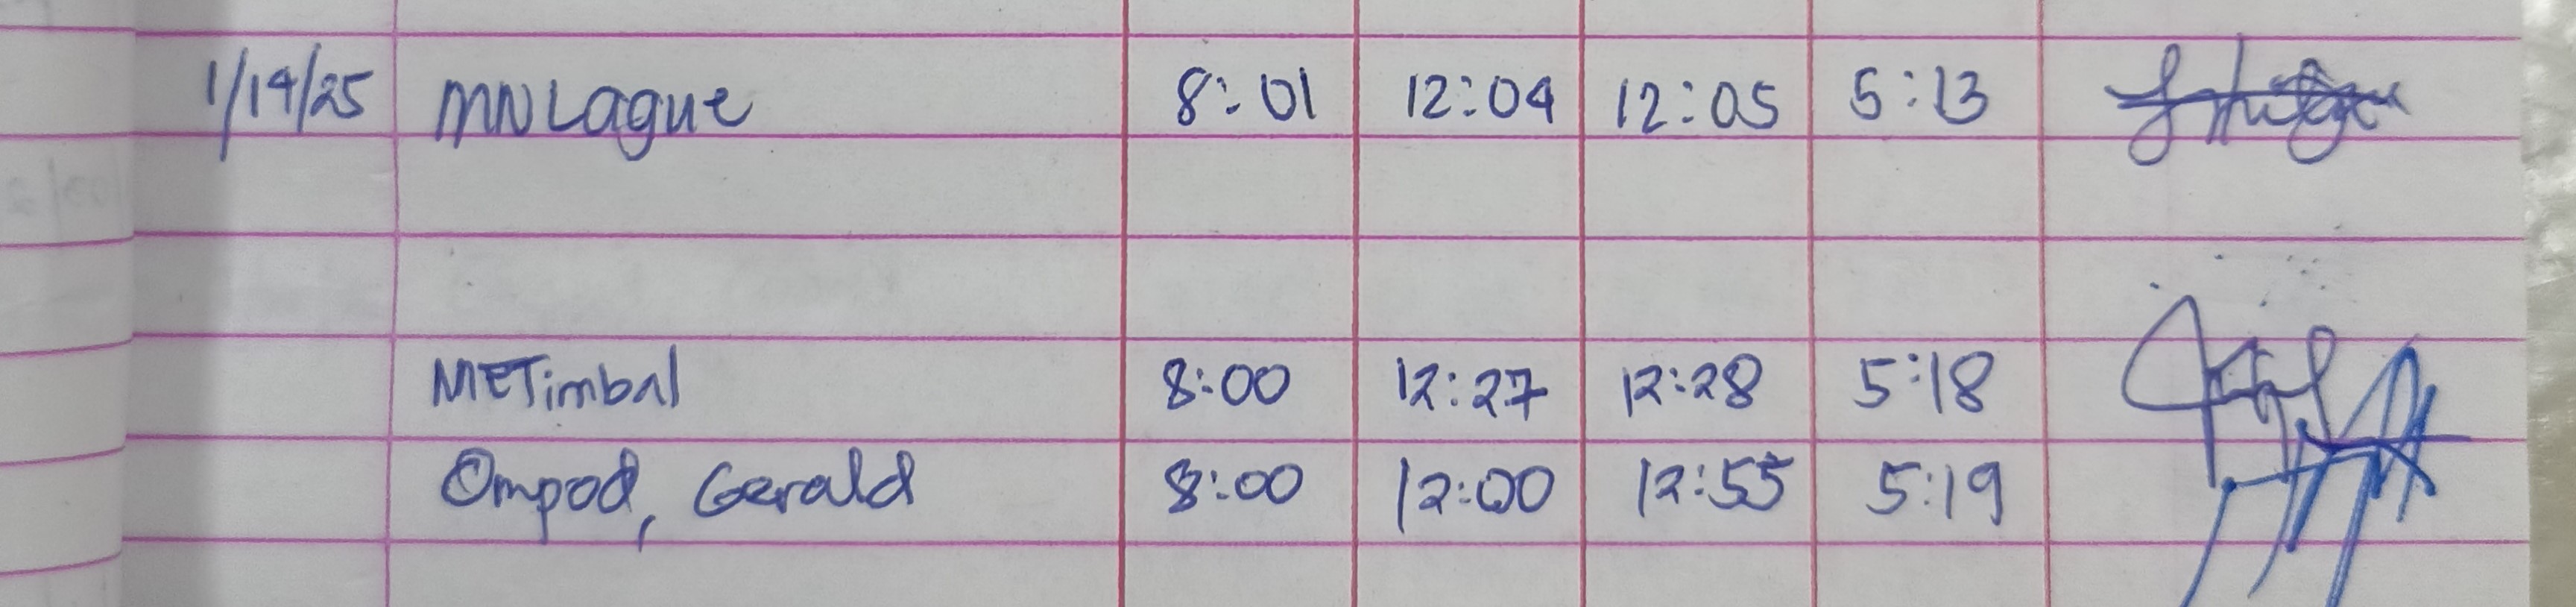 1/14/25 MNLague 8:01 12:04 12:05 5:13
METimbal 8:00 12:27 12:28 5:18
Ompod, Gerald 8:00 12:00 12:55 5:19